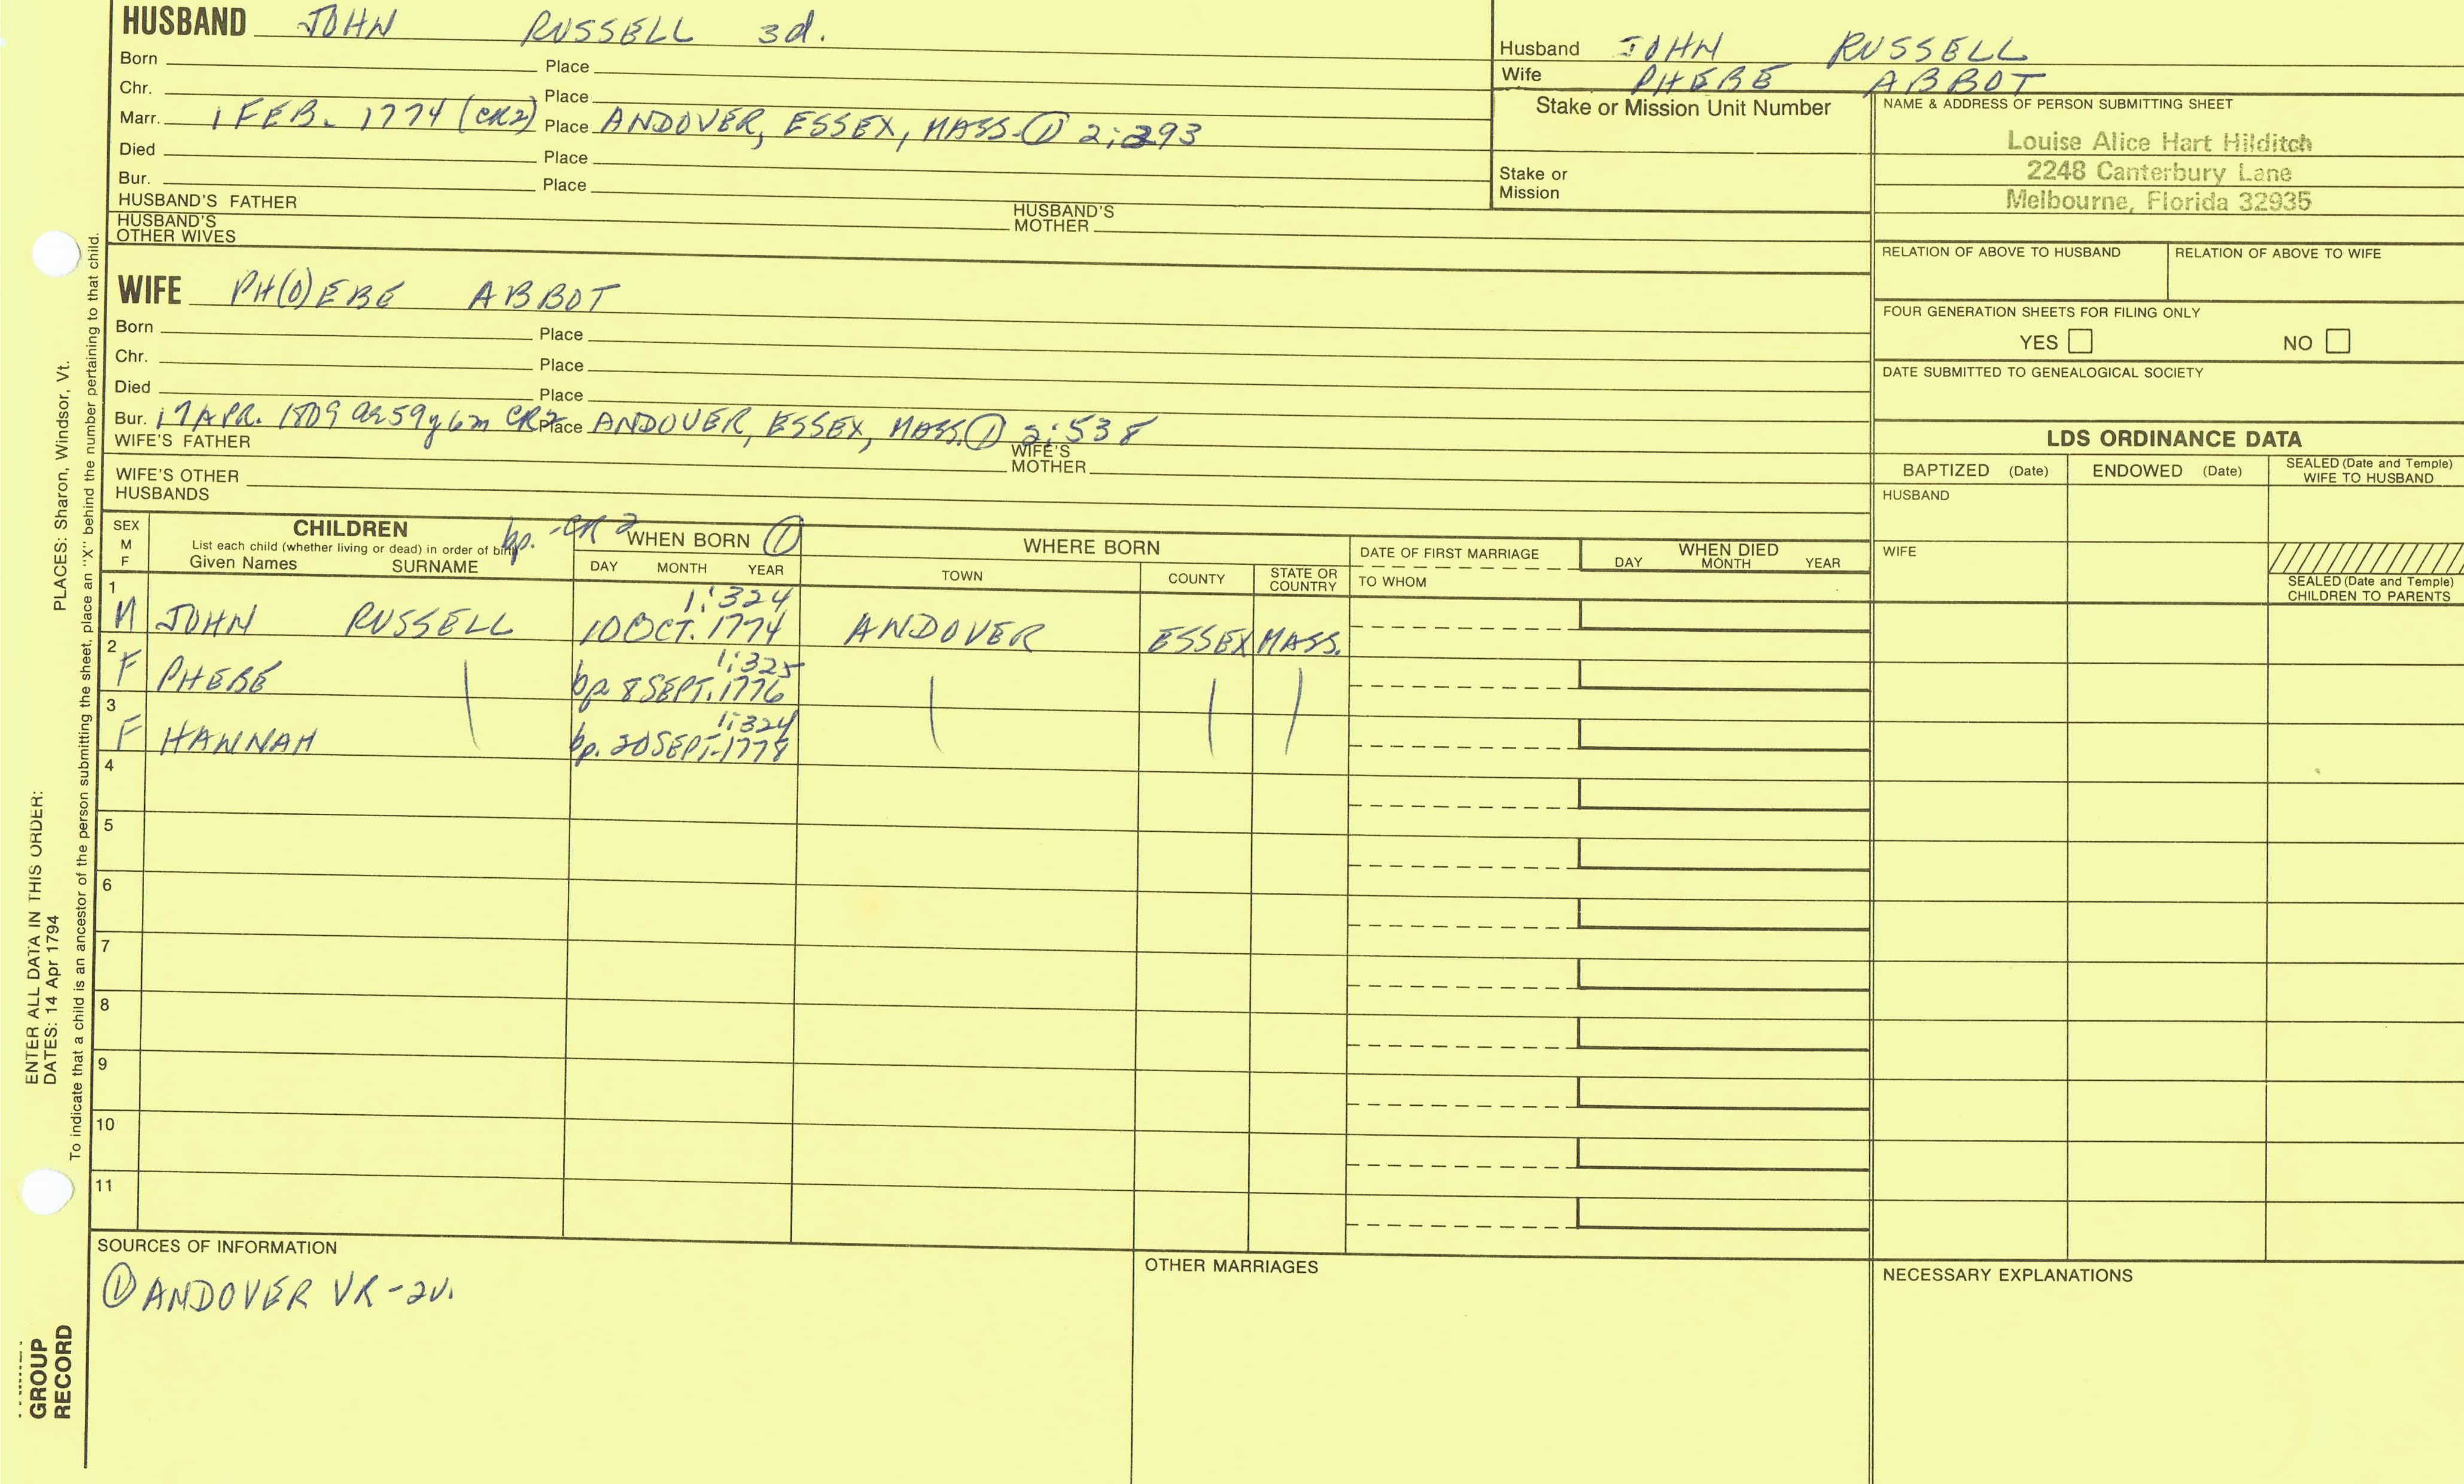 HUSBAND JOHN RUSSELL 3d.
Born Place
Chr. Place
Marr. 1 FEB. 1774 (CR2) Place ANDOVER, ESSEX, MASS. ① 2:293
Died Place
Bur. Place
HUSBAND'S FATHER HUSBAND'S MOTHER
HUSBAND'S OTHER WIVES
Husband JOHN RUSSELL
Wife PHEBE ABBOT
Stake or Mission Unit Number
Stake or
Mission
NAME & ADDRESS OF PERSON SUBMITTING SHEET
Louise Alice Hart Hilditch
2248 Canterbury Lane
Melbourne, Florida 32935
RELATION OF ABOVE TO HUSBAND RELATION OF ABOVE TO WIFE
FOUR GENERATION SHEETS FOR FILING ONLY
YES NO
DATE SUBMITTED TO GENEALOGICAL SOCIETY
WIFE PH(O)EBE ABBOT
Born Place
Chr. Place
Died Place
Bur. 17 APR. 1809 ae 59y 6m CR2 Place ANDOVER, ESSEX, MASS. ① 2:538
WIFE'S FATHER WIFE'S MOTHER
WIFE'S OTHER
HUSBANDS
LDS ORDINANCE DATA
BAPTIZED (Date) ENDOWED (Date) SEALED (Date and Temple) WIFE TO HUSBAND
HUSBAND
WIFE
SEALED (Date and Temple)
CHILDREN TO PARENTS
SEX
M
F
CHILDREN
List each child (whether living or dead) in order of birth
Given Names SURNAME
bp. - CR 2
WHEN BORN ①
DAY MONTH YEAR
WHERE BORN
TOWN COUNTY STATE OR COUNTRY
DATE OF FIRST MARRIAGE
TO WHOM
WHEN DIED
DAY MONTH YEAR
1:324
1 M JOHN RUSSELL 10 OCT. 1774 ANDOVER ESSEX MASS.
1:325
2 F PHEBE bp. 8 SEPT. 1776
1:324
3 F HANNAH bp. 20 SEPT. 1778
4
5
6
7
8
9
10
11
SOURCES OF INFORMATION
① ANDOVER VR - 2v.
OTHER MARRIAGES
NECESSARY EXPLANATIONS
PLACES: Sharon, Windsor, Vt.
ENTER ALL DATA IN THIS ORDER:
DATES: 14 Apr 1794
To indicate that a child is an ancestor of the person submitting the sheet, place an "X" behind the number pertaining to that child.
GROUP
RECORD